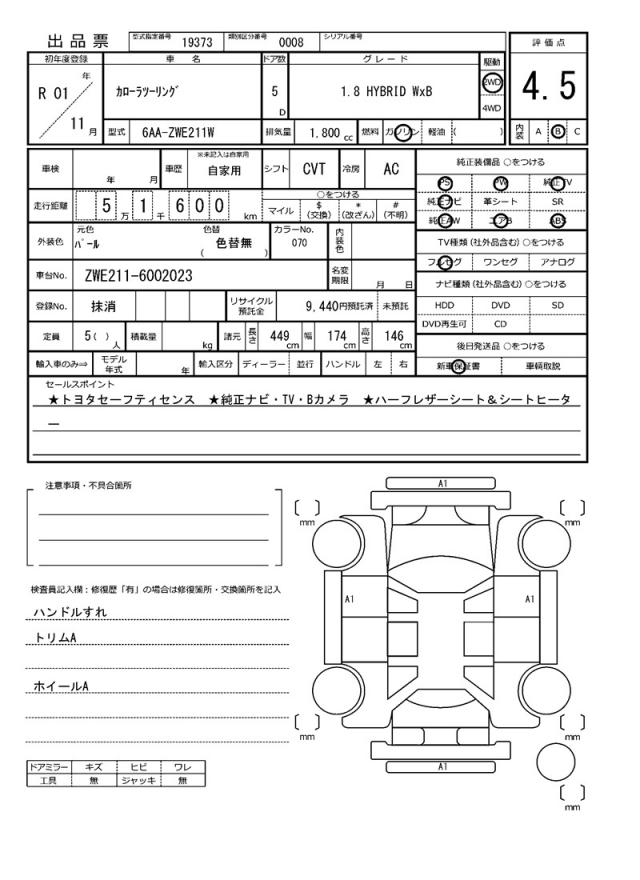 出品票 型式指定番号 19373 類別区分番号 0008 シリアル番号
評価点
4.5
内装 A B C
初年度登録 車名 ドア数 グレード 駆動
R 01 年 11 月 カローラツーリング 5 D 1.8 HYBRID WxB 2WD 4WD
型式 6AA-ZWE211W 排気量 1.800 cc 燃料 ガソリン 軽油 ( )
車検 年 月 車歴 ※未記入は自家用 自家用 シフト CVT 冷房 AC
走行距離 5 万 1 千 6 0 0 km
○をつける
マイル $(交換) *(改ざん) #(不明)
外装色 元色 パール 色替 ( 色替無 ) カラーNo. 070 内装色
車台No. ZWE211-6002023 名変期限 月 日
登録No. 抹消 リサイクル預託金 9,440円預託済 未預託
定員 5( ) 人 積載量 kg 諸元 長さ 449 cm 幅 174 cm 高さ 146 cm
輸入車のみ⇒ モデル年式 年 輸入区分 ディーラー 並行 ハンドル 左 右
純正装備品 ○をつける
PS PW 純正TV
純正ナビ 革シート SR
純正AW エアB ABS
TV種類 (社外品含む) ○をつける
フルセグ ワンセグ アナログ
ナビ種類 (社外品含む) ○をつける
HDD DVD SD
DVD再生可 CD
後日発送品 ○をつける
新車保証書 車輌取説
セールスポイント
★トヨタセーフティセンス ★純正ナビ・TV・Bカメラ ★ハーフレザーシート＆シートヒータ
ー
注意事項・不具合箇所
検査員記入欄：修復歴「有」の場合は修復箇所・交換箇所を記入
ハンドルすれ
トリムA
ホイールA
ドアミラー キズ ヒビ ワレ
工具 無 ジャッキ 無
A1
mm mm
A1 A1
mm mm
A1
mm